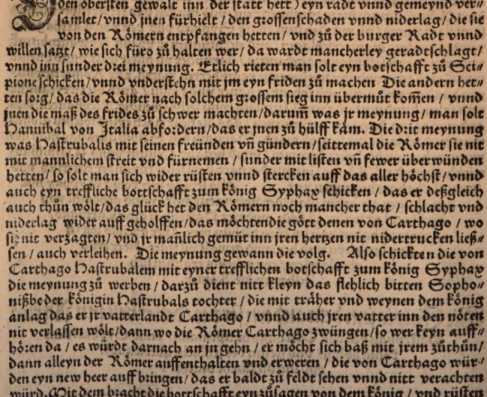 den obersten gewalt inn der statt hett) eyn radt vnnd gemeynd ver-
samlet/ vnnd jnen fürhielt/ den grossen schaden vnnd niderlag/ die sie
von den Römern entpfangen hetten/ vnd zů der burger Radt vnnd
willen satzt/ wie sich füro zů halten wer/ da wardt mancherley geradtschlagt/
vnnd inn sunder drei meynung. Etlich rieten man solt eyn botschafft zů Sci-
pione schicken/ vnnd vnderstehn mit jm eyn friden zů machen Die andern het-
ten sorg/ das die Römer nach solchem grossem sieg inn übermůt kom̃en/ vnnd
jnen die maß des frides zů schwer machten/ darum̃ was jr meynung/ man solt
Hannibal von Italia abfordern/ das er jnen zů hülff kam. Die drit meynung
was Hastrubalis mit seinen freünden vñ gündern/ seittemal die Römer sie nit
mit mannlichem streit vnd fürnemen/ sunder mit listen vñ fewer überwünden
hetten/ so solt man sich wider rüsten vnnd stercken auff das aller höchst/ vnnd
auch eyn treffliche bottschafft zum künig Syphax schicken/ das er deßgleich
auch thůn wölt/ das glück het den Römern noch mancher that/ schlacht vnd
niderlag wider auff geholffen/ das möchten die gött denen von Carthago/ wo
sie nit verzagten/ vnd jr mañlich gemüt inn jren hertzen nit nidertrucken ließ-
sen/ auch verleihen. Die meynung gewann die volg. Also schickten die von
Carthago Hastrubalem mit eyner trefflichen botschafft zum künig Syphax
die meynung zů werben/ darzů dient nitt kleyn das flehlich bitten Sopho-
nißbe der künigin Hastrubals tochter/ die mit träher vnd weynen dem künig
anlag das er jr vatterlandt Carthago/ vnnd auch jren vatter inn den nöten
nit verlassen wölt/ dann wo die Römer Carthago zwüngen/ so wer keyn auff-
hören da/ es würdt darnach an jn gehn/ er möcht sich baß mit jrem zůthůn/
dann alleyn der Römer auffenthalten vnd erweren/ die von Carthago wür-
den eyn new heer auff bringen/ das er baldt zů feldt sehen vnnd nitt verachten
würd. Mit dem bracht die bottschafft eyn zůsagen von dem künig/ vnd rüsten